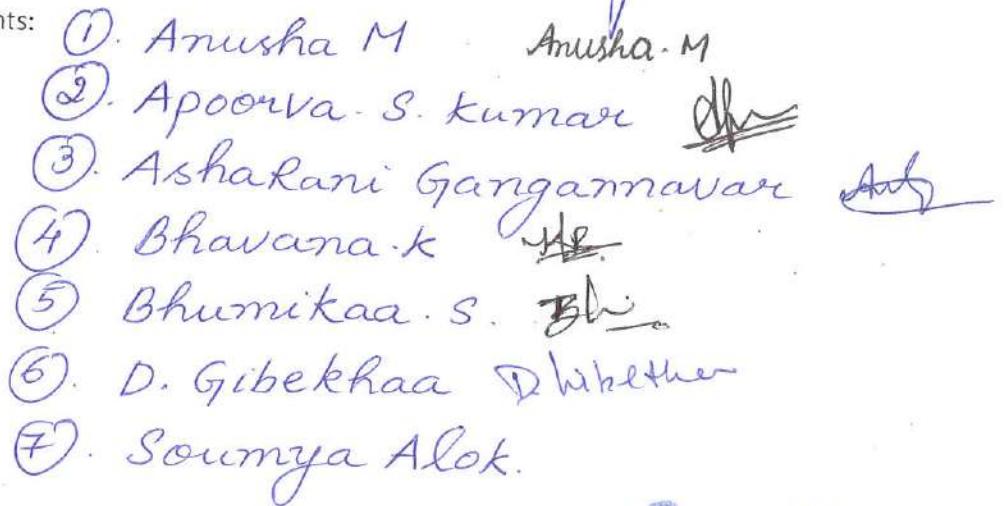 nts:
①. Anusha M Anusha. M
②. Apoorva. S. Kumar
③. AshaRani Gangannavar
④. Bhavana.K
⑤ Bhumikaa. S.
⑥. D. Gibekhaa
⑦. Soumya Alok.